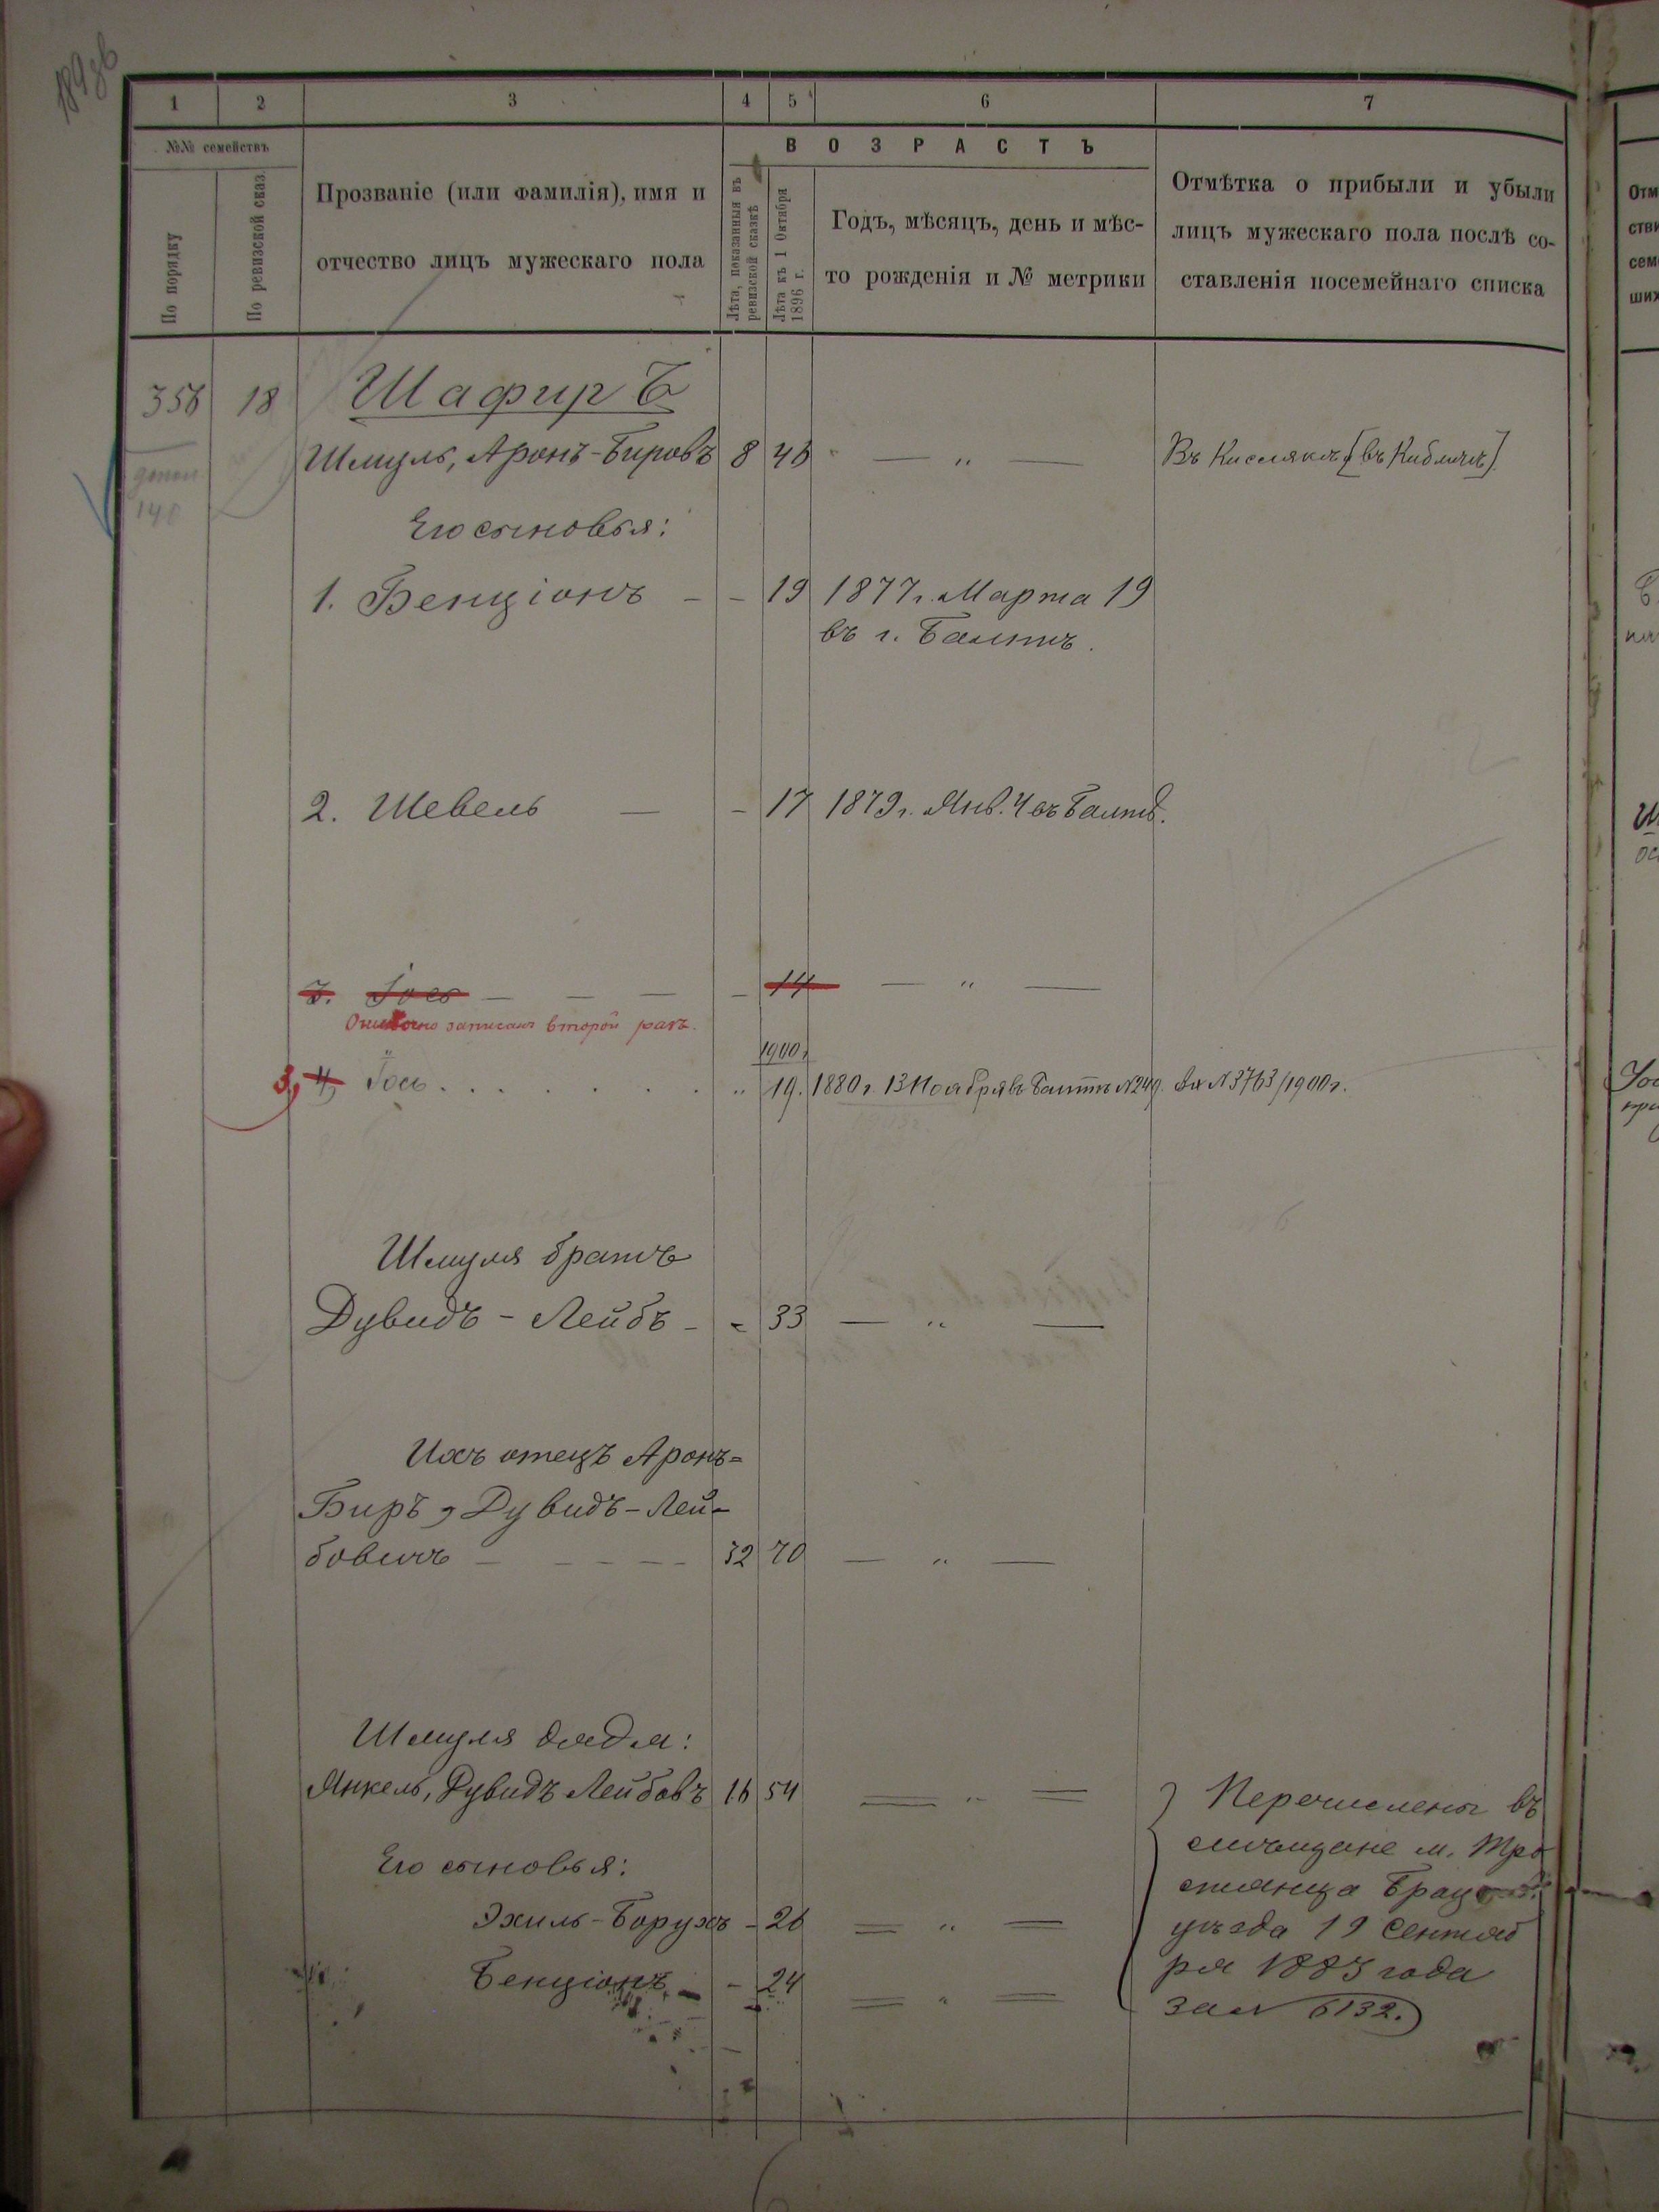 1 2 3 4 5 6 7
№№ семействъ
По порядку
По ревизской сказ.
Прозваніе (или фамилія), имя и
отчество лицъ мужескаго пола
ВОЗРАСТЪ
Лѣта, показанныя въ
ревизской сказкѣ
Лѣта къ 1 Октября
1896 г.
Годъ, мѣсяцъ, день и мѣс-
то рожденія и № метрики
Отмѣтка о прибыли и убыли
лицъ мужескаго пола послѣ со-
ставленія посемейнаго списка
358 18 Шафиръ
Шмуль, Аронъ-Бировъ 8 46 — „ — Въ Киснякѣ [въ Кибличѣ]
Его сыновья:
1. Бенціонъ - - 19 1877 г. Марта 19
въ г. Балтѣ.
2. Шевель — - 17 1879 г. Янв. 4 въ Балтѣ.
3. Іось — — — - 14 — „ —
Ошибочно записанъ второй разъ.
1900 г.
3, 4, Іось . . . . . . . „ 19. 1880 г. 13 Ноября въ Балтѣ № 249. Вх № 3763/1900 г.
Шмуля братъ
Дувидъ - Лейбъ - - 33 — „ —
Ихъ отецъ Аронъ-
Биръ, Дувидъ-Лей-
бовичъ - - - - - 32 70 — „ —
Шмуля дядя:
Янкель, Дувидъ Лейбовъ 16 54 — „ —
Его сыновья:
Эхиль-Борухъ - 26 — „ —
Бенціонъ - - 24 — „ —
Перечислены въ
мѣщане м. Тро
стянца Брацл.
уѣзда 19 Сентяб
ря 1883 года
за № 6132.